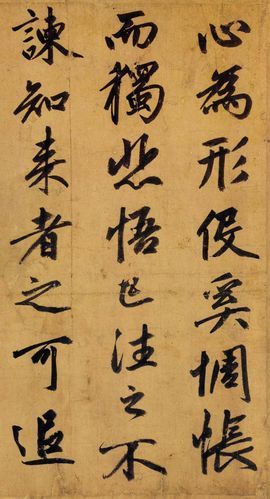 心為形役奚惆悵
而獨悲悟已往之不
諫知来者之可追